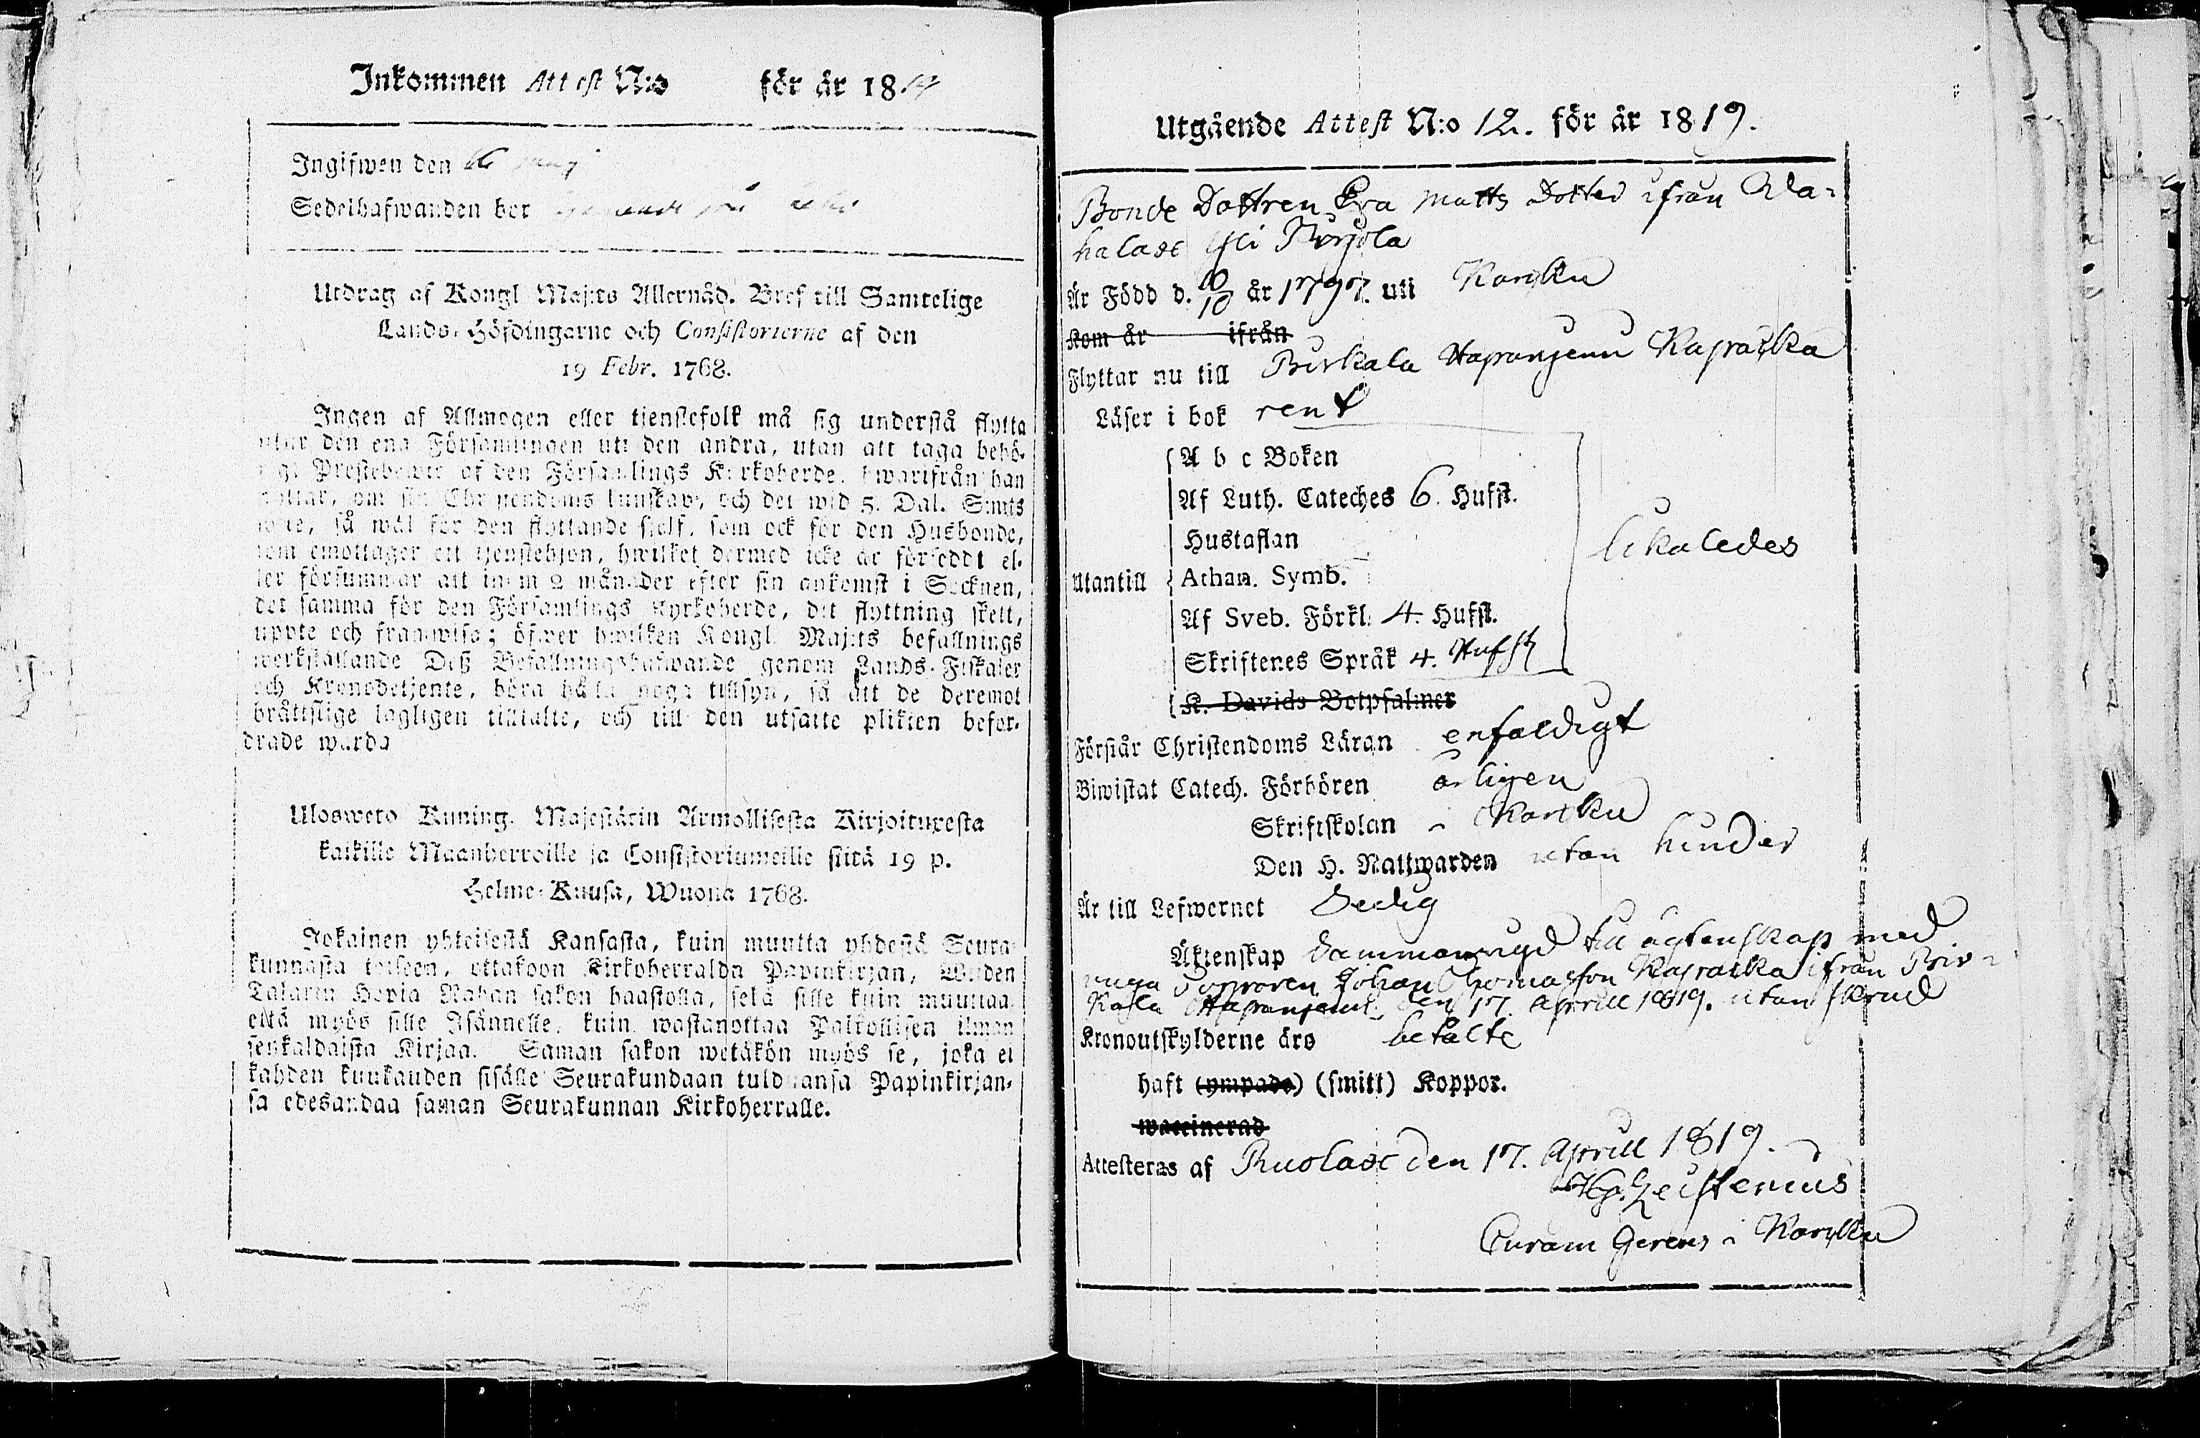 Inkommen Attest N:o för år 18
Ingifwen den
Sedelhafwanden bor
Utdrag af Kongl Maj:ts Allernåd. Bref till Samtelige
Lands-Höfdingarne och Consistorierne af den
19 Febr. 1768.
Ingen af Allmogen eller tjenstefolk må sig understå flytta
utur den ena Församlingen uti den andra, utan att taga behö-
rigt Prestebewis af den Församlings Kyrkoherde, hwarifrån han
flyttar, om sin Christendoms kunskap, och det wid 5. Dal. S:mts
wite, så wäl för den flyttande sjelf, som ock för den Husbonde,
som emottager ett tjenstehjon, hwilket dermed icke är försedt el-
ler försummar att inom 2 månader efter sin ankomst i Socknen,
det samma för den Församlings Kyrkoherde, dit flyttning skett,
uppte och framwisa; öfwer hwilken Kongl. Maj:ts befallnings
werkställande Deß Befallningshafwande genom Lands-Fiskaler
och Kronobetjente, böra hålla noga tillsyn, så att de deremot
bråttslige lagligen tilltalte, och till den utsatte plikten befor-
drade warda
Ulosweto Kuning. Majestätin Armollisesta Kirjoituxesta
kaikille Maanherroille ja Consistoriumeille siitä 19 p.
Helme-Kuusa, Wuona 1768.
Jokainen yhteisestä Kansasta, kuin muutta yhdestä Seura-
kunnasta toiseen, ottakoon Kirkoherralda Papinkirjan, Wiiden
Talarin Hopia Rahan sakon haastolla, sekä sille kuin muuttaa,
että myös sille Isännelle, kuin wastanottaa Palkollisen ilman
senkaldaista Kirjaa. Saman sakon wetäkön myös se, joka ei
kahden kuukauden sisälle Seurakundaan tulduansa Papinkirjan-
sa edesandaa saman Seurakunnan Kirkoherralle.
Utgående Attest N:o 12. för år 1819.
Bonde Dottren Eva Matts Dotter ifrån Wa-
halax Yli Pirjola
Är Född d. 10/10 år 1797. uti Karkku
Kom år ifrån
Flyttar nu till Birkala Haponjemi Kaparka
Läser i bok rent
A b c Boken
Af Luth. Cateches 6. Hufst.
Hustaflan
Utantill Athan. Symb. likaledes
Af Sveb. Förkl. 4. Hufst.
Skriftenes Språk 4. Hufst
K. Davids Botpsalmer
Förstår Christendoms Läran enfaldigt
Biwistat Catech. Förhören årligen
Skriftskolan i Karkku
Den H. Nattwarden utan hinder
Är till Lefwernet Sedig
Äktenskap Sammanwigd till ägtenskap med
unga Johan Thomasson Kaparka ifrån Bir-
kala Haponjemi den 17. Aprill 1819. utan skrud
Kronoutskylderne äro betalte
haft (ympade) (smitt) Koppor.
waccinerad
Attesteras af Kuolax den 17. Aprill 1819.
Zeisterius
Curam Gerens i Karkku